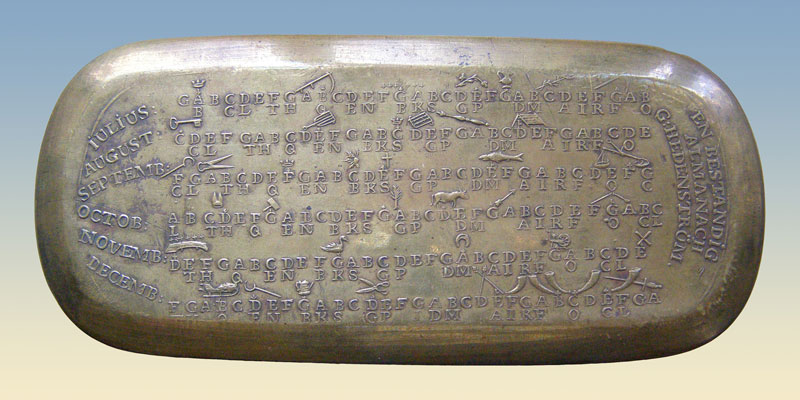 IULIUS:
GABCDEFGABCDEFGABCDEFGABCDEFGAB
B CL TH Q EN BKS GP DM AIRF O
AUGUST:
CDEFGABCDEFGABCDEFGABCDEFGABCDE
CL TH Q EN BKS GP DM AIRF O
SEPTEMB:
FGABCDEFGABCDEFGABCDEFGABCDEFG
CL TH Q EN BKS GP DM AIRF O C
OCTOB:
ABCDEFGABCDEFGABCDEFGABCDEFGABC
L TH Q EN BKS GP DM AIRF O CL
NOVEMB:
DEFGABCDEFGABCDEFGABCDEFGABCDE
TH Q EN BKS GP DM AIRF O CL
DECEMB:
FGABCDEFGABCDEFGABCDEFGABCDEFGA
TH Q EN BKS GP DM AIRF O CL
EN BESTÄNDIG
ALMANACH
G:HEDENSTRÖM